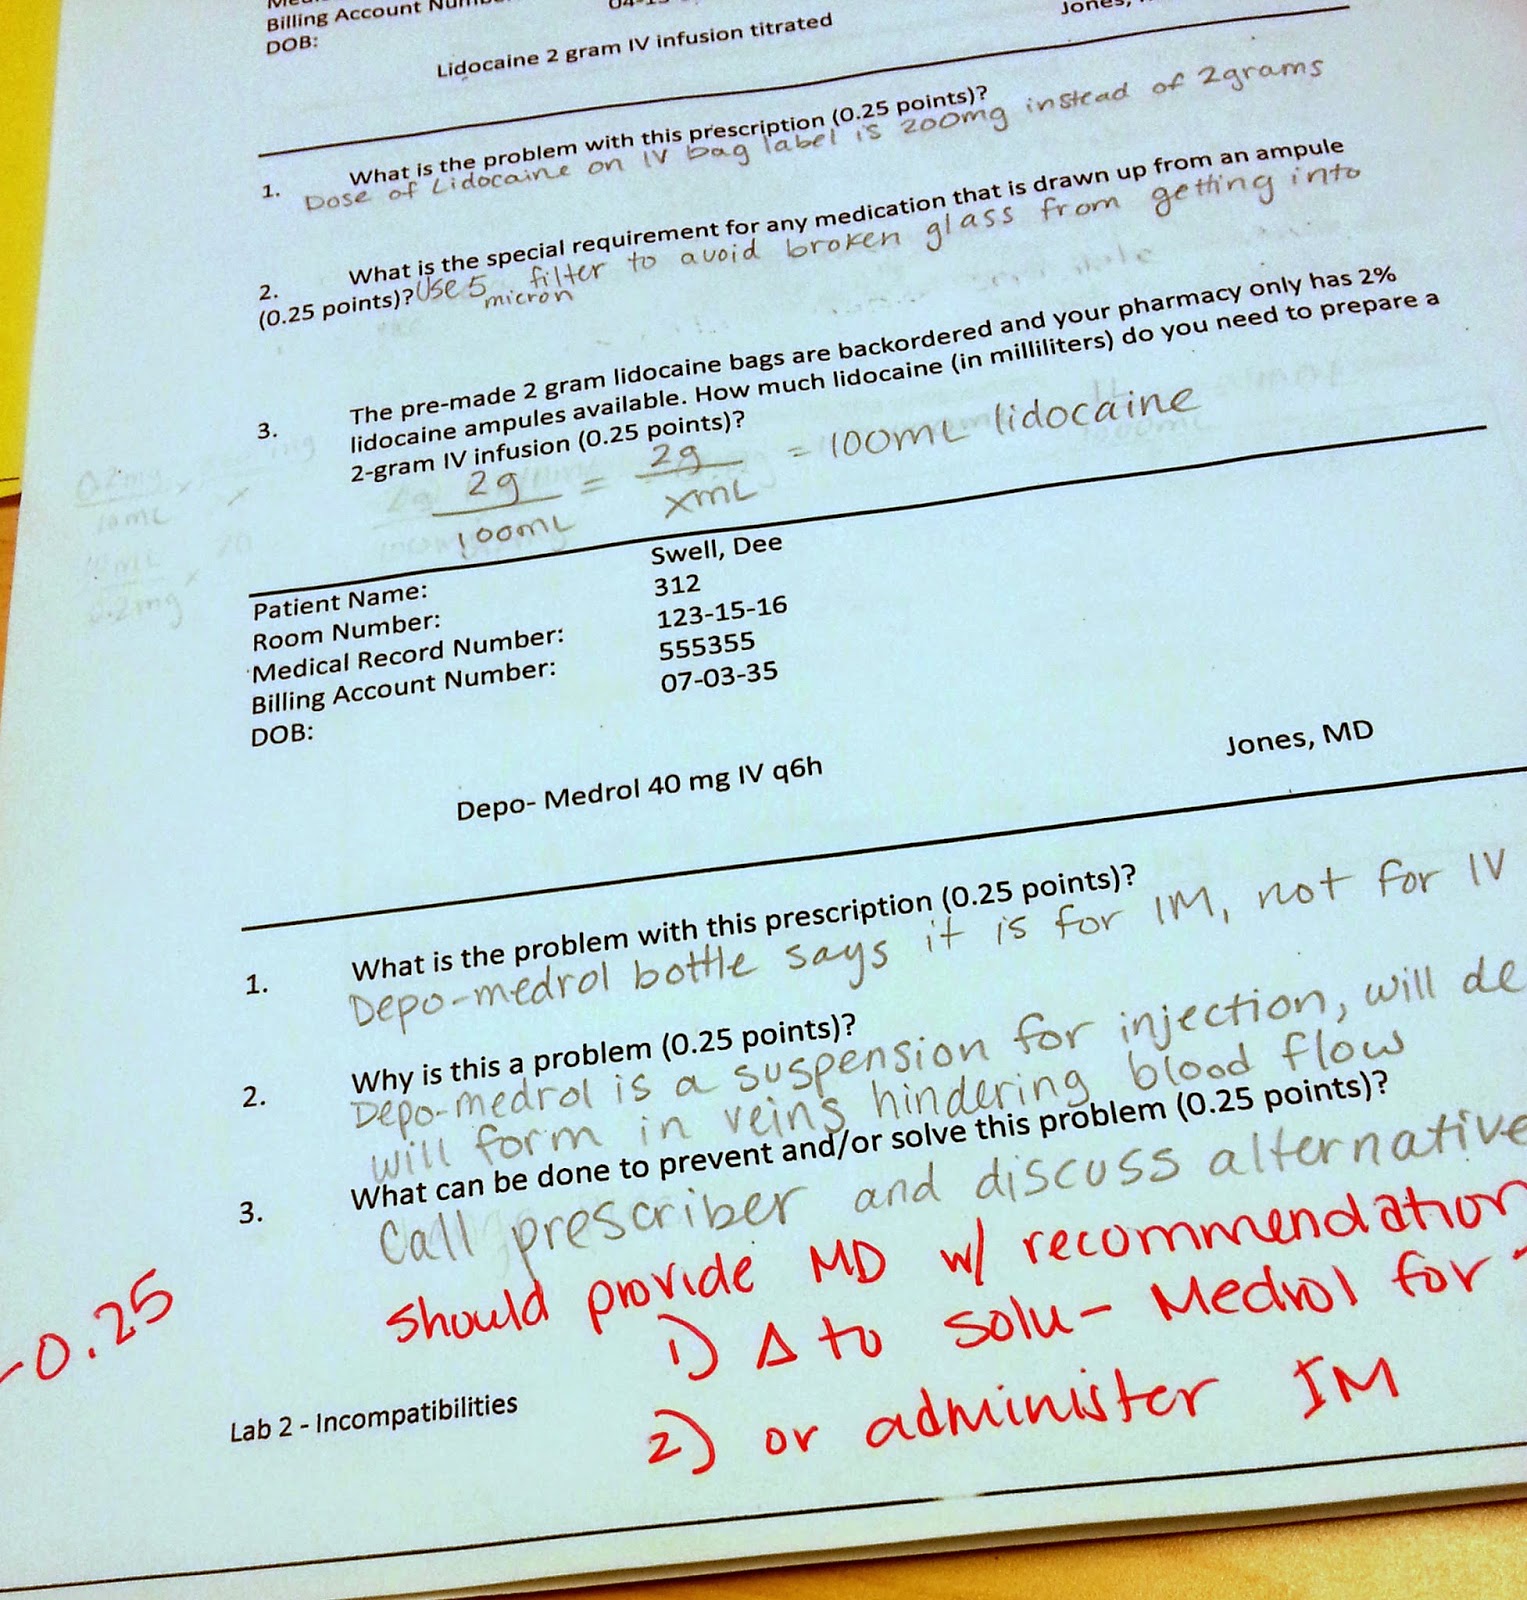 Billing Account
DOB:
Lidocaine 2 gram IV infusion titrated
Jones,
1. What is the problem with this prescription (0.25 points)?
Dose of Lidocaine on IV bag label is 200mg instead of 2grams
2. What is the special requirement for any medication that is drawn up from an ampule
(0.25 points)? Use 5 micron filter to avoid broken glass from getting into
3. The pre-made 2 gram lidocaine bags are backordered and your pharmacy only has 2%
lidocaine ampules available. How much lidocaine (in milliliters) do you need to prepare a
2-gram IV infusion (0.25 points)?
2g / 100mL = 2g / x mL = 100mL lidocaine
Patient Name: Swell, Dee
Room Number: 312
Medical Record Number: 123-15-16
Billing Account Number: 555355
DOB: 07-03-35
Depo- Medrol 40 mg IV q6h
Jones, MD
1. What is the problem with this prescription (0.25 points)?
Depo-medrol bottle says it is for IM, not for IV
2. Why is this a problem (0.25 points)?
Depo-medrol is a suspension for injection, will de
will form in veins hindering blood flow
3. What can be done to prevent and/or solve this problem (0.25 points)?
Call prescriber and discuss alternative
should provide MD w/ recommendation
-0.25
1) Δ to Solu-Medrol for
2) or administer IM
Lab 2 - Incompatibilities